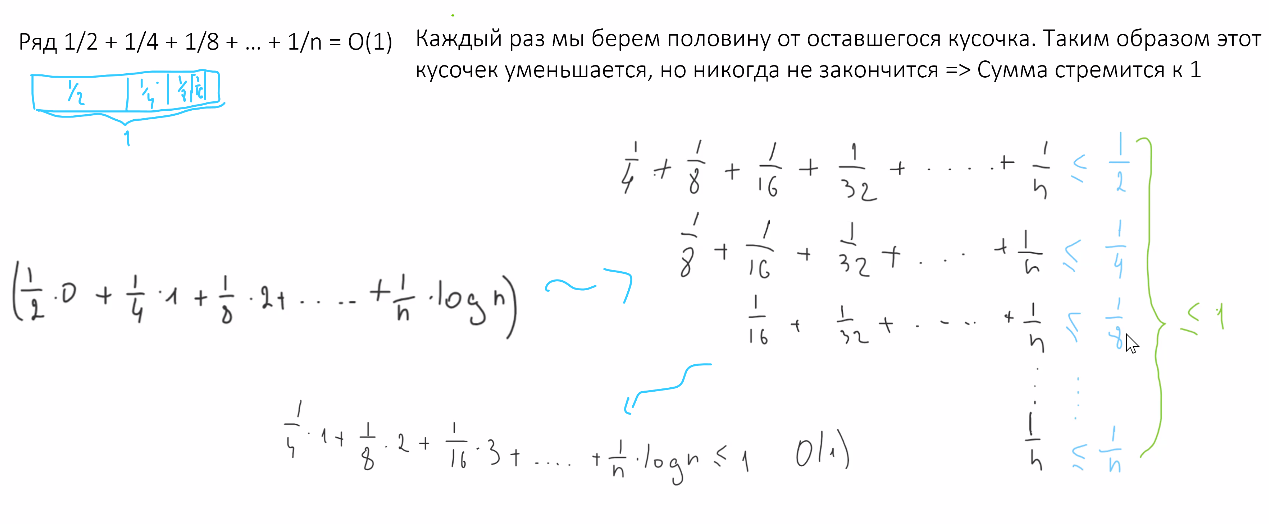 Ряд 1/2 + 1/4 + 1/8 + ... + 1/n = O(1)
Каждый раз мы берем половину от оставшегося кусочка. Таким образом этот
кусочек уменьшается, но никогда не закончится => Сумма стремится к 1
1/2 1/4 1/8 1/16
1
1/4 + 1/8 + 1/16 + 1/32 + .... + 1/n ≤ 1/2
1/8 + 1/16 + 1/32 + .... + 1/n ≤ 1/4
(1/2 · 0 + 1/4 · 1 + 1/8 · 2 + ..... + 1/n · log n)
1/16 + 1/32 + ..... + 1/n ≤ 1/8
≤ 1
1/n ≤ 1/n
1/4 · 1 + 1/8 · 2 + 1/16 · 3 + .... + 1/n · log n ≤ 1 O(1)